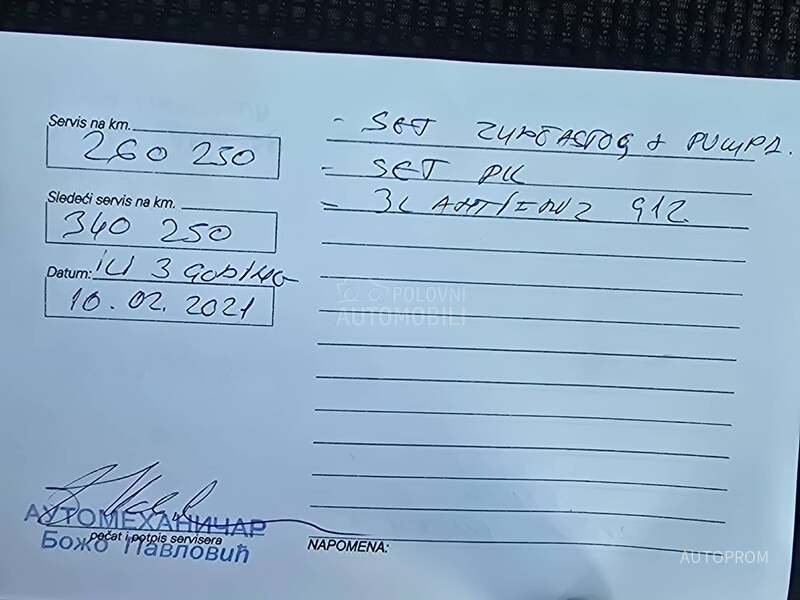 Servis na km.
260 250
Sledeći servis na km.
340 250
Datum: ILI 3 GODINE
10.02.2021
- SET ZUPČASTOG + PUMPA.
- SET PK
- 3L ANTIFRIZ G12
POLOVNI
AUTOMOBILI
АУТОМЕХАНИЧАР
Божо Павловић
pečat i potpis servisera
NAPOMENA:
AUTOPROM